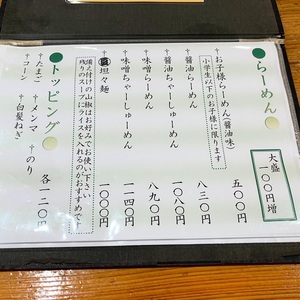 ●らーめん●
大盛
一〇〇円増
お子様らーめん醤油味 五〇〇円
小学生以下のお子様に限ります
醤油らーめん 八三〇円
醤油ちゃーしゅーめん 一〇八〇円
味噌らーめん 八九〇円
味噌ちゃーしゅーめん 一一四〇円
坦々麺 一〇〇〇円
備え付けの山椒はお好みでお使い下さい
残りのスープにライスを入れるのがおすすめです
●トッピング●
たまご メンマ のり
コーン 白髪ねぎ 各一二〇円